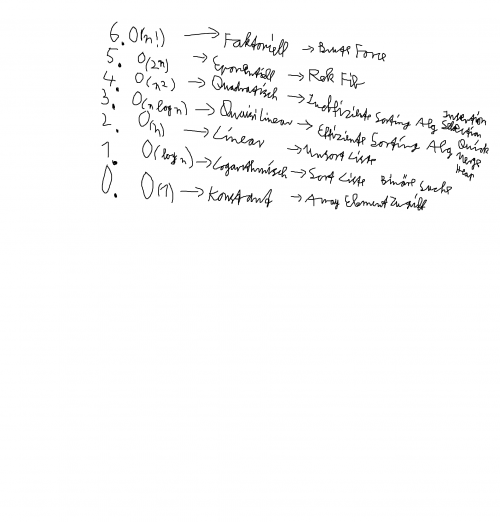 6. O(n!) → Faktoriell → Brute Force
5. O(2n) → Exponentiell → Rek Fib
4. O(n2) → Quadratisch → Ineffiziente Sorting Alg Insertion Selection
3. O(n log n) → Quasi Linear → Effiziente Sorting Alg Quick Merge Heap
2. O(n) → Linear → Unsort Liste
1. O(log n) → Logarithmisch → Sort Liste Binäre Suche
0. O(1) → Konstant → Array Element Zugriff